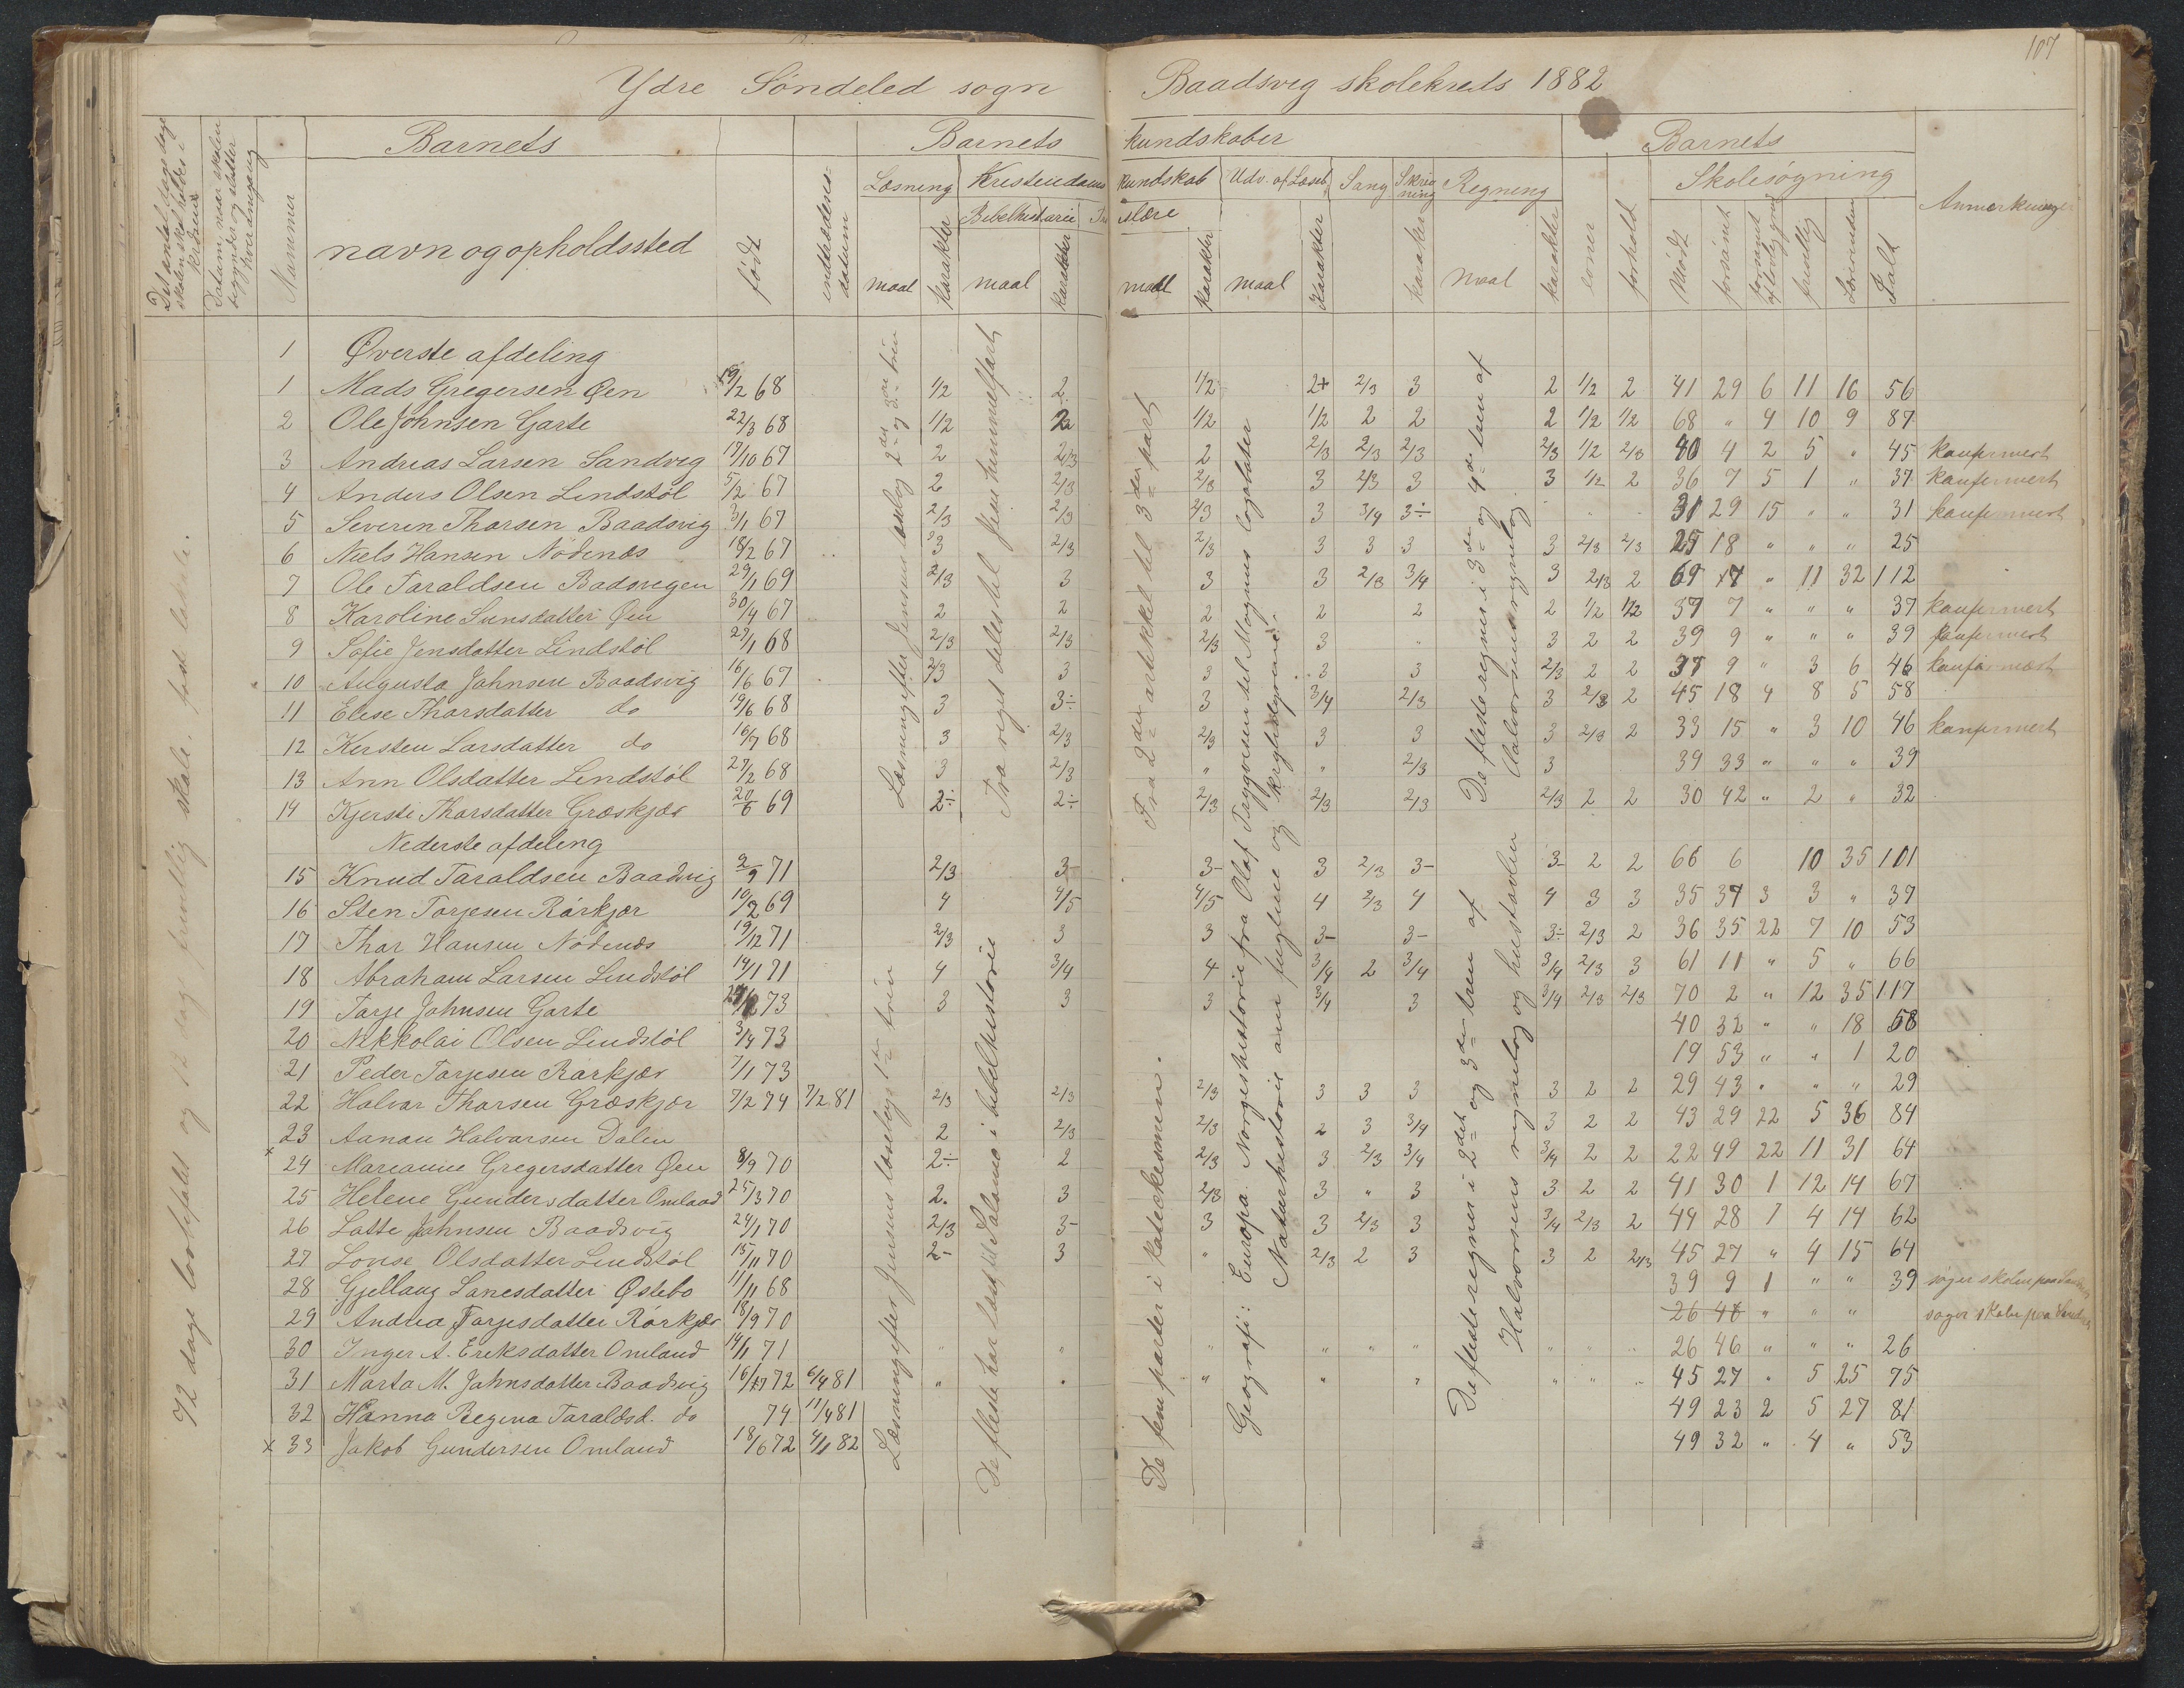 107
Ydre Söndeled sogn Baadsvig skolekreds 1882
Det antal dage
skolen skal holdes i
kredsene
Datum, naar skolen
begynder og slutter
hver omgang
Nummer
Barnets
navn og opholdssted
født
indtrædelses-
datum
Barnets kundskaber
Læsning
maal
karakter
Kristendoms kundskab
Bibelhistorie
maal
karakter
Troslære
maal
karakter
Udv. af Læseb.
maal
karakter
Sang
Skriv
ning
karakter
Regning
maal
karakter
evner
forhold
Barnets
Skolesøgning
Mødt
forsömt
forsömt
af lovlig grund
frivillig
Lovbunden
Ialt
Anmerkninger
72 dage lovbefalt og 12 dage frivillig skole.
1 Øverste afdeling
1 Mads Gregersen Øen 19/2 68 1/2 2 1/2 2+ 2/3 3 2 1/2 2 41 29 6 11 16 56
2 Ole Johnsen Garte 22/3 68 1/2 2 1/2 1/2 2 2 2 1/2 1/2 68 " 4 10 9 87
3 Andreas Larsen Sandvig 17/10 67 2 2/3 2 2/3 2/3 2/3 2/3 1/2 2/3 40 4 2 5 " 45 konfirmert
4 Anders Olsen Lindstöl 5/2 67 2 2/3 2/3 3 2/3 3 3 1/2 2 36 7 5 1 " 37 konfirmert
5 Severin Thorsen Baadsvig 3/1 67 2/3 2/3 2/3 3 3/4 3÷ 31 29 15 " " 31 konfirmert
6 Niels Hansen Nödenæs 18/2 67 3 2/3 2/3 3 3 3 3 2/3 2/3 25 18 " " " 25
7 Ole Taraldsen Badsvigen 29/1 69 2/3 3 3 3 2/3 3/4 3 2/3 2 69 17 " 11 32 112
8 Karoline Sunsdatter Øen 30/4 67 2 2 2 2 2 2 1/2 1/2 37 7 " " " 37 konfirmert
9 Sofie Jensdatter Lindstöl 29/1 68 2/3 2/3 2/3 3 " 3 2 2 39 9 " " " 39 konfirmert
10 Augusta Johnsen Baadsvig 16/6 67 2/3 3 3 3 3 2/3 2 2 37 9 " 3 6 46 konfirmert
11 Elise Thorsdatter do 19/6 68 3 3÷ 3 3/4 2/3 3 2/3 2 45 18 4 8 5 58
12 Kersten Larsdatter do 16/7 68 3 2/3 2/3 3 3 3 2/3 2 33 15 " 3 10 46 konfirmert
13 Ann Olsdatter Lindstöl 27/2 68 3 2/3 " " 2/3 3 39 33 " " " 39
14 Kjersti Thorsdatter Græskjær 20/6 69 2÷ 2÷ 2/3 2/3 2/3 2/3 2 2 30 42 " 2 " 32
Nederste afdeling
15 Knud Taraldsen Baadsvig 2/9 71 2/3 3- 3- 3 2/3 3- 3- 2 2 66 6 10 35 101
16 Sten Torjesen Rörkjær 10/2 69 4 4/5 4/5 4 2/3 4 4 3 3 35 37 3 3 " 37
17 Thor Hansen Nödenæs 19/12 71 2/3 3 3 3- 3- 3÷ 2/3 2 36 35 22 7 10 53
18 Abraham Larsen Lindstöl 14/1 71 4 3/4 4 3/4 2 3/4 3/4 2/3 3 61 11 " 5 " 66
19 Torje Johnsen Garte 73 3 3 3 3/4 3 3/4 2/3 2/3 70 2 " 12 35 117
20 Nikkolai Olsen Lindstöl 3/4 73 40 32 " " 18 58
21 Peder Torjesen Rörkjær 7/1 73 19 53 " " 1 20
22 Halvor Thorsen Græskjær 7/2 74 7/2 81 2/3 2/3 2/3 3 3 3 3 2 2 29 43 " " " 29
23 Aanon Halvorsen Dalen 2 2/3 2/3 2 3 3/4 3 2 2 43 29 22 5 36 84
× 24 Marianne Gregersdatter Øen 8/9 70 2÷ 2 2/3 3 2/3 3/4 3/4 2 2 22 49 22 11 31 64
25 Helene Gundersdatter Omland 25/3 70 2. 3 2/3 3 " 3 3 2 2 41 30 1 12 14 67
26 Lotte Johnsen Baadsvig 24/1 70 2/3 3- 3 3 2/3 3 3/4 2/3 2 44 28 7 4 14 62
27 Lovise Olsdatter Lindstöl 15/11 70 2- 3 " 2/3 2 3 3 2 2/3 45 27 " 4 15 64
28 Gjellaug Lanesdatter Østebo 11/11 68 39 9 1 " " 39 söger skolen paa
29 Andrea Torjesdatter Rörkjær 18/9 70 26 46 " " " söger skole paa
30 Inger A. Ereksdatter Omland 14/1 71 " " " " " " " " " 26 46 " " " 26
31 Marta M. Johnsdatter Baadsvig 16/11 72 6/4 81 " " " " " " " " 45 27 " 5 25 75
32 Hanna Regina Taraldsd. do 74 11/4 81 49 23 2 5 27 81
× 33 Jakob Gundersen Omland 18/6 72 4/1 82 49 32 " 4 " 53
Læsning efter Jensens læsebog 2det og 3die trin
Fra riget deles til Jesu himmelfart
Fra 2den artikkel til 3die part
De fleste regner i 3die og 4de trin af
Halvorsens regnebog
Læsning efter Jensens læsebogs 1ste trin
De fleste har læst til Salomo i bibelhistorie
De fem parter i katekismen.
Geografi: Europa. Norgeshistorie fra Olaf Trygvesen til Magnus lagabøter
Naturhistorie om fuglene og krybdyrene.
De fleste regner i 2det og 3die trin af
Halvorsens regnebog og hustavlen